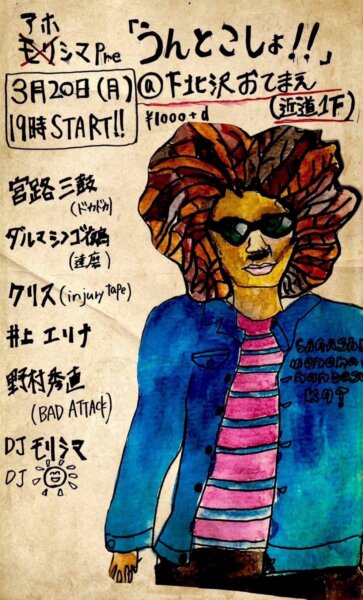 アホ
モリシマ Pre 「うんとこしょ!!」
3月20日(月)
19時 START!!
@下北沢 おてまえ
(近道1F)
¥1000+d
宮路 三鼓
(ドカドカ)
ダルマシンゴ
(達磨)
クリス (injury tape)
井上 エリナ
野村秀直
(BAD ATTACK)
DJ モリシマ
DJ